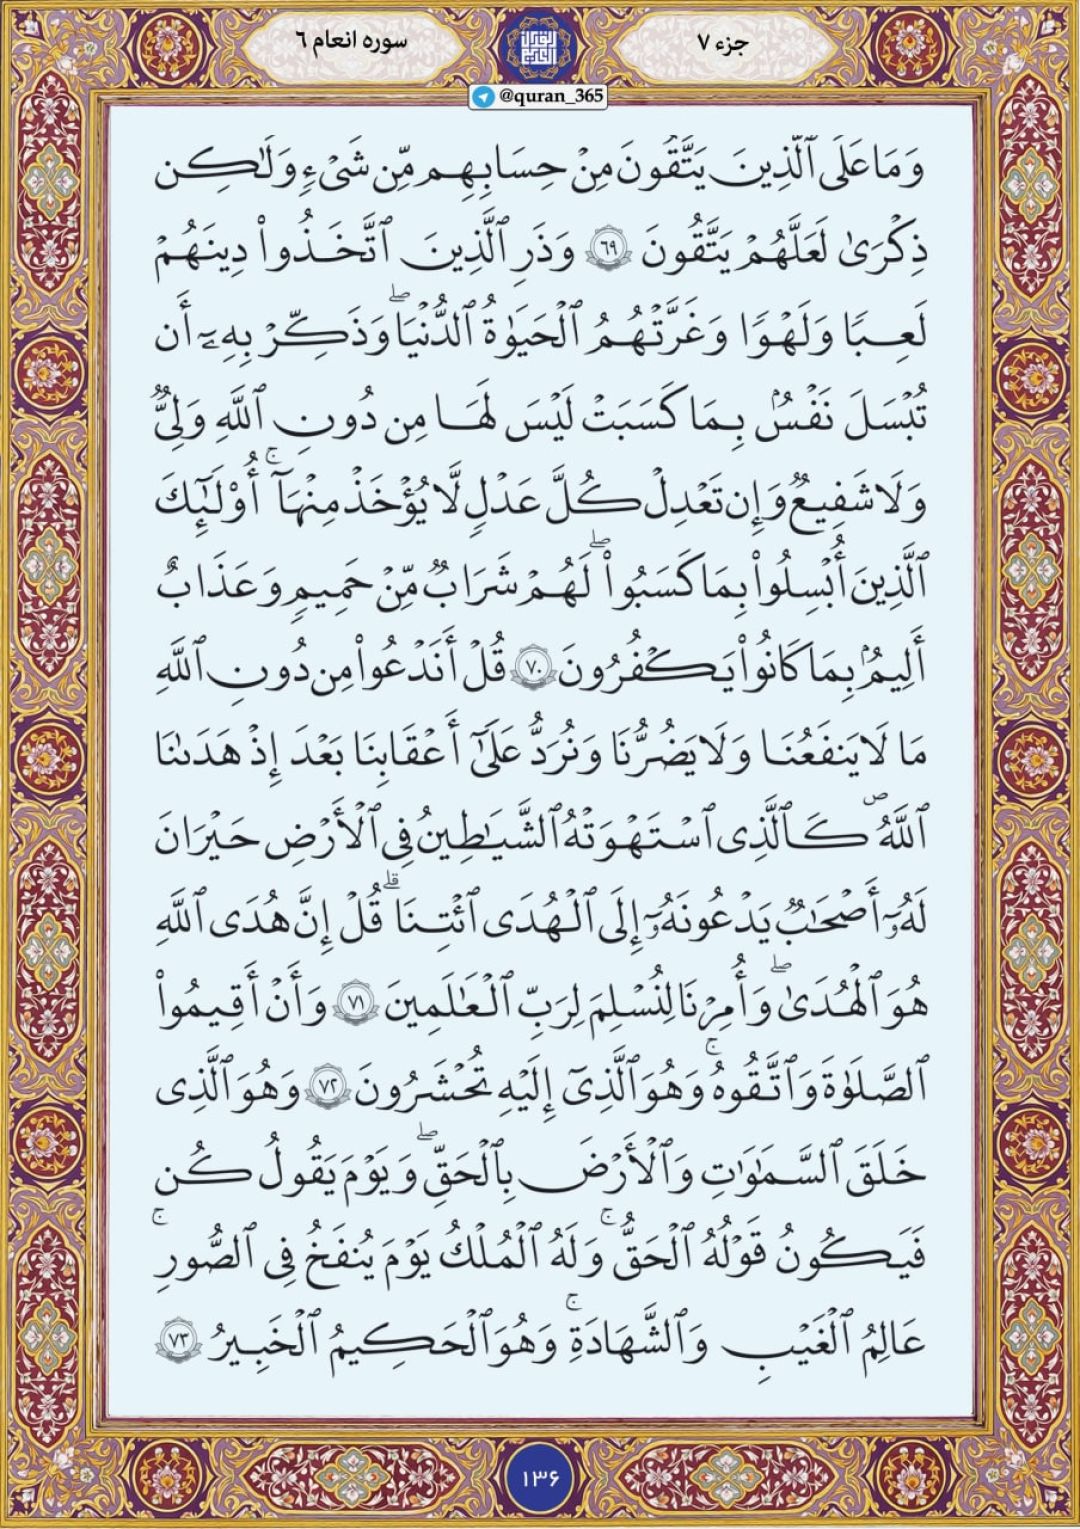 جزء ۷
سوره انعام ۶
@quran_365
وَمَا عَلَى ٱلَّذِينَ يَتَّقُونَ مِنْ حِسَابِهِم مِّن شَىْءٍ وَلَٰكِن
ذِكْرَىٰ لَعَلَّهُمْ يَتَّقُونَ ۶۹ وَذَرِ ٱلَّذِينَ ٱتَّخَذُوا۟ دِينَهُمْ
لَعِبًا وَلَهْوًا وَغَرَّتْهُمُ ٱلْحَيَوٰةُ ٱلدُّنْيَا ۖ وَذَكِّرْ بِهِۦٓ أَن
تُبْسَلَ نَفْسٌۢ بِمَا كَسَبَتْ لَيْسَ لَهَا مِن دُونِ ٱللَّهِ وَلِىٌّ
وَلَا شَفِيعٌ وَإِن تَعْدِلْ كُلَّ عَدْلٍ لَّا يُؤْخَذْ مِنْهَآ ۗ أُو۟لَٰٓئِكَ
ٱلَّذِينَ أُبْسِلُوا۟ بِمَا كَسَبُوا۟ ۖ لَهُمْ شَرَابٌ مِّنْ حَمِيمٍ وَعَذَابٌ
أَلِيمٌۢ بِمَا كَانُوا۟ يَكْفُرُونَ ۷۰ قُلْ أَنَدْعُوا۟ مِن دُونِ ٱللَّهِ
مَا لَا يَنفَعُنَا وَلَا يَضُرُّنَا وَنُرَدُّ عَلَىٰٓ أَعْقَابِنَا بَعْدَ إِذْ هَدَىٰنَا
ٱللَّهُ كَٱلَّذِى ٱسْتَهْوَتْهُ ٱلشَّيَٰطِينُ فِى ٱلْأَرْضِ حَيْرَانَ
لَهُۥٓ أَصْحَٰبٌ يَدْعُونَهُۥٓ إِلَى ٱلْهُدَى ٱئْتِنَا ۗ قُلْ إِنَّ هُدَى ٱللَّهِ
هُوَ ٱلْهُدَىٰ ۖ وَأُمِرْنَا لِنُسْلِمَ لِرَبِّ ٱلْعَٰلَمِينَ ۷۱ وَأَنْ أَقِيمُوا۟
ٱلصَّلَوٰةَ وَٱتَّقُوهُ ۚ وَهُوَ ٱلَّذِىٓ إِلَيْهِ تُحْشَرُونَ ۷۲ وَهُوَ ٱلَّذِى
خَلَقَ ٱلسَّمَٰوَٰتِ وَٱلْأَرْضَ بِٱلْحَقِّ ۖ وَيَوْمَ يَقُولُ كُن
فَيَكُونُ قَوْلُهُ ٱلْحَقُّ ۚ وَلَهُ ٱلْمُلْكُ يَوْمَ يُنفَخُ فِى ٱلصُّورِ ۚ
عَالِمُ ٱلْغَيْبِ وَٱلشَّهَادَةِ ۚ وَهُوَ ٱلْحَكِيمُ ٱلْخَبِيرُ ۷۳
۱۳۶